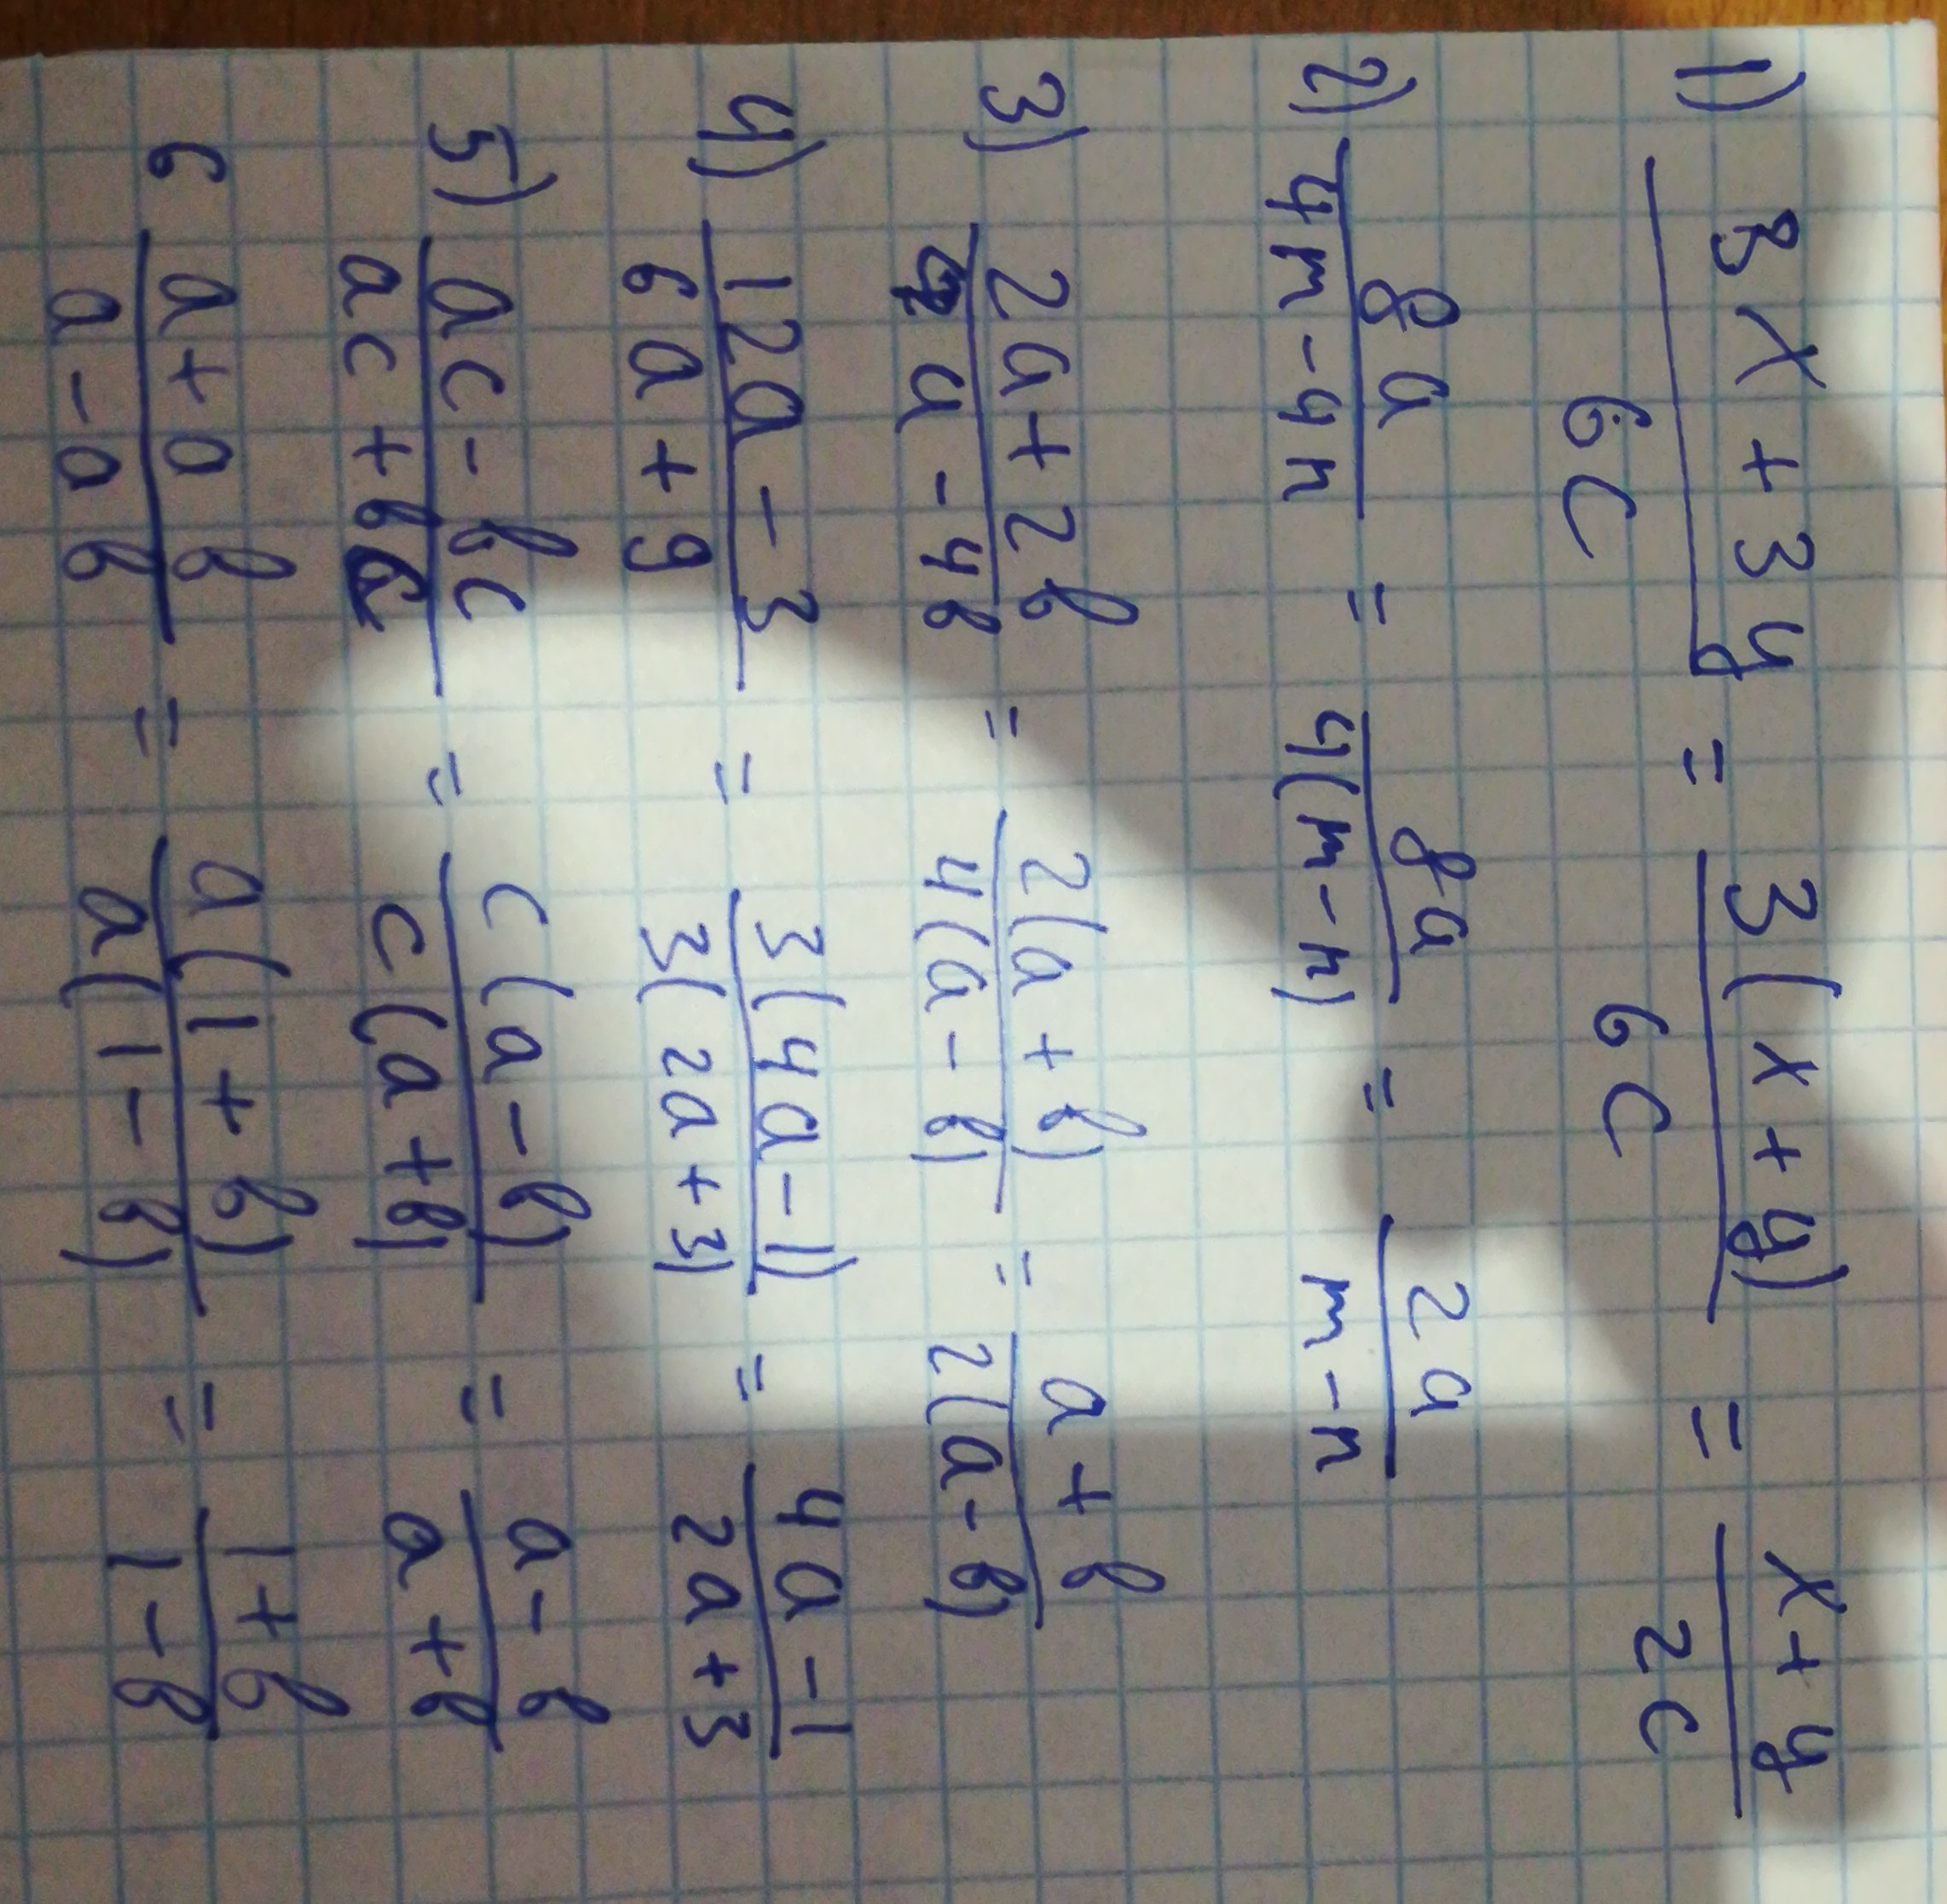 1) (3x + 3y)/(6c) = (3(x + y))/(6c) = (x + y)/(2c)
2) (8a)/(4m - 4n) = (8a)/(4(m - n)) = (2a)/(m - n)
3) (2a + 2b)/(4a - 4b) = (2(a + b))/(4(a - b)) = (a + b)/(2(a - b))
4) (12a - 3)/(6a + 9) = (3(4a - 1))/(3(2a + 3)) = (4a - 1)/(2a + 3)
5) (ac - bc)/(ac + bc) = (c(a - b))/(c(a + b)) = (a - b)/(a + b)
6 (a + ab)/(a - ab) = (a(1 + b))/(a(1 - b)) = (1 + b)/(1 - b)